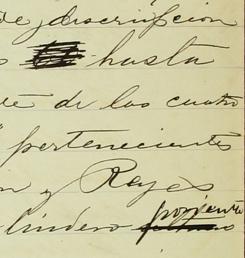 de, descripcion
s hasta
te de los cuatro
pertenecientes
n y Reyes
lindero poniente